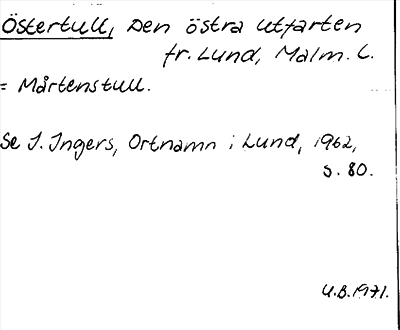 Östertull, Den östra utfarten
fr. Lund, Malm. L.
= Mårtenstull.
Se I. Ingers, Ortnamn i Lund, 1962,
s. 80.
U.B. 1971.